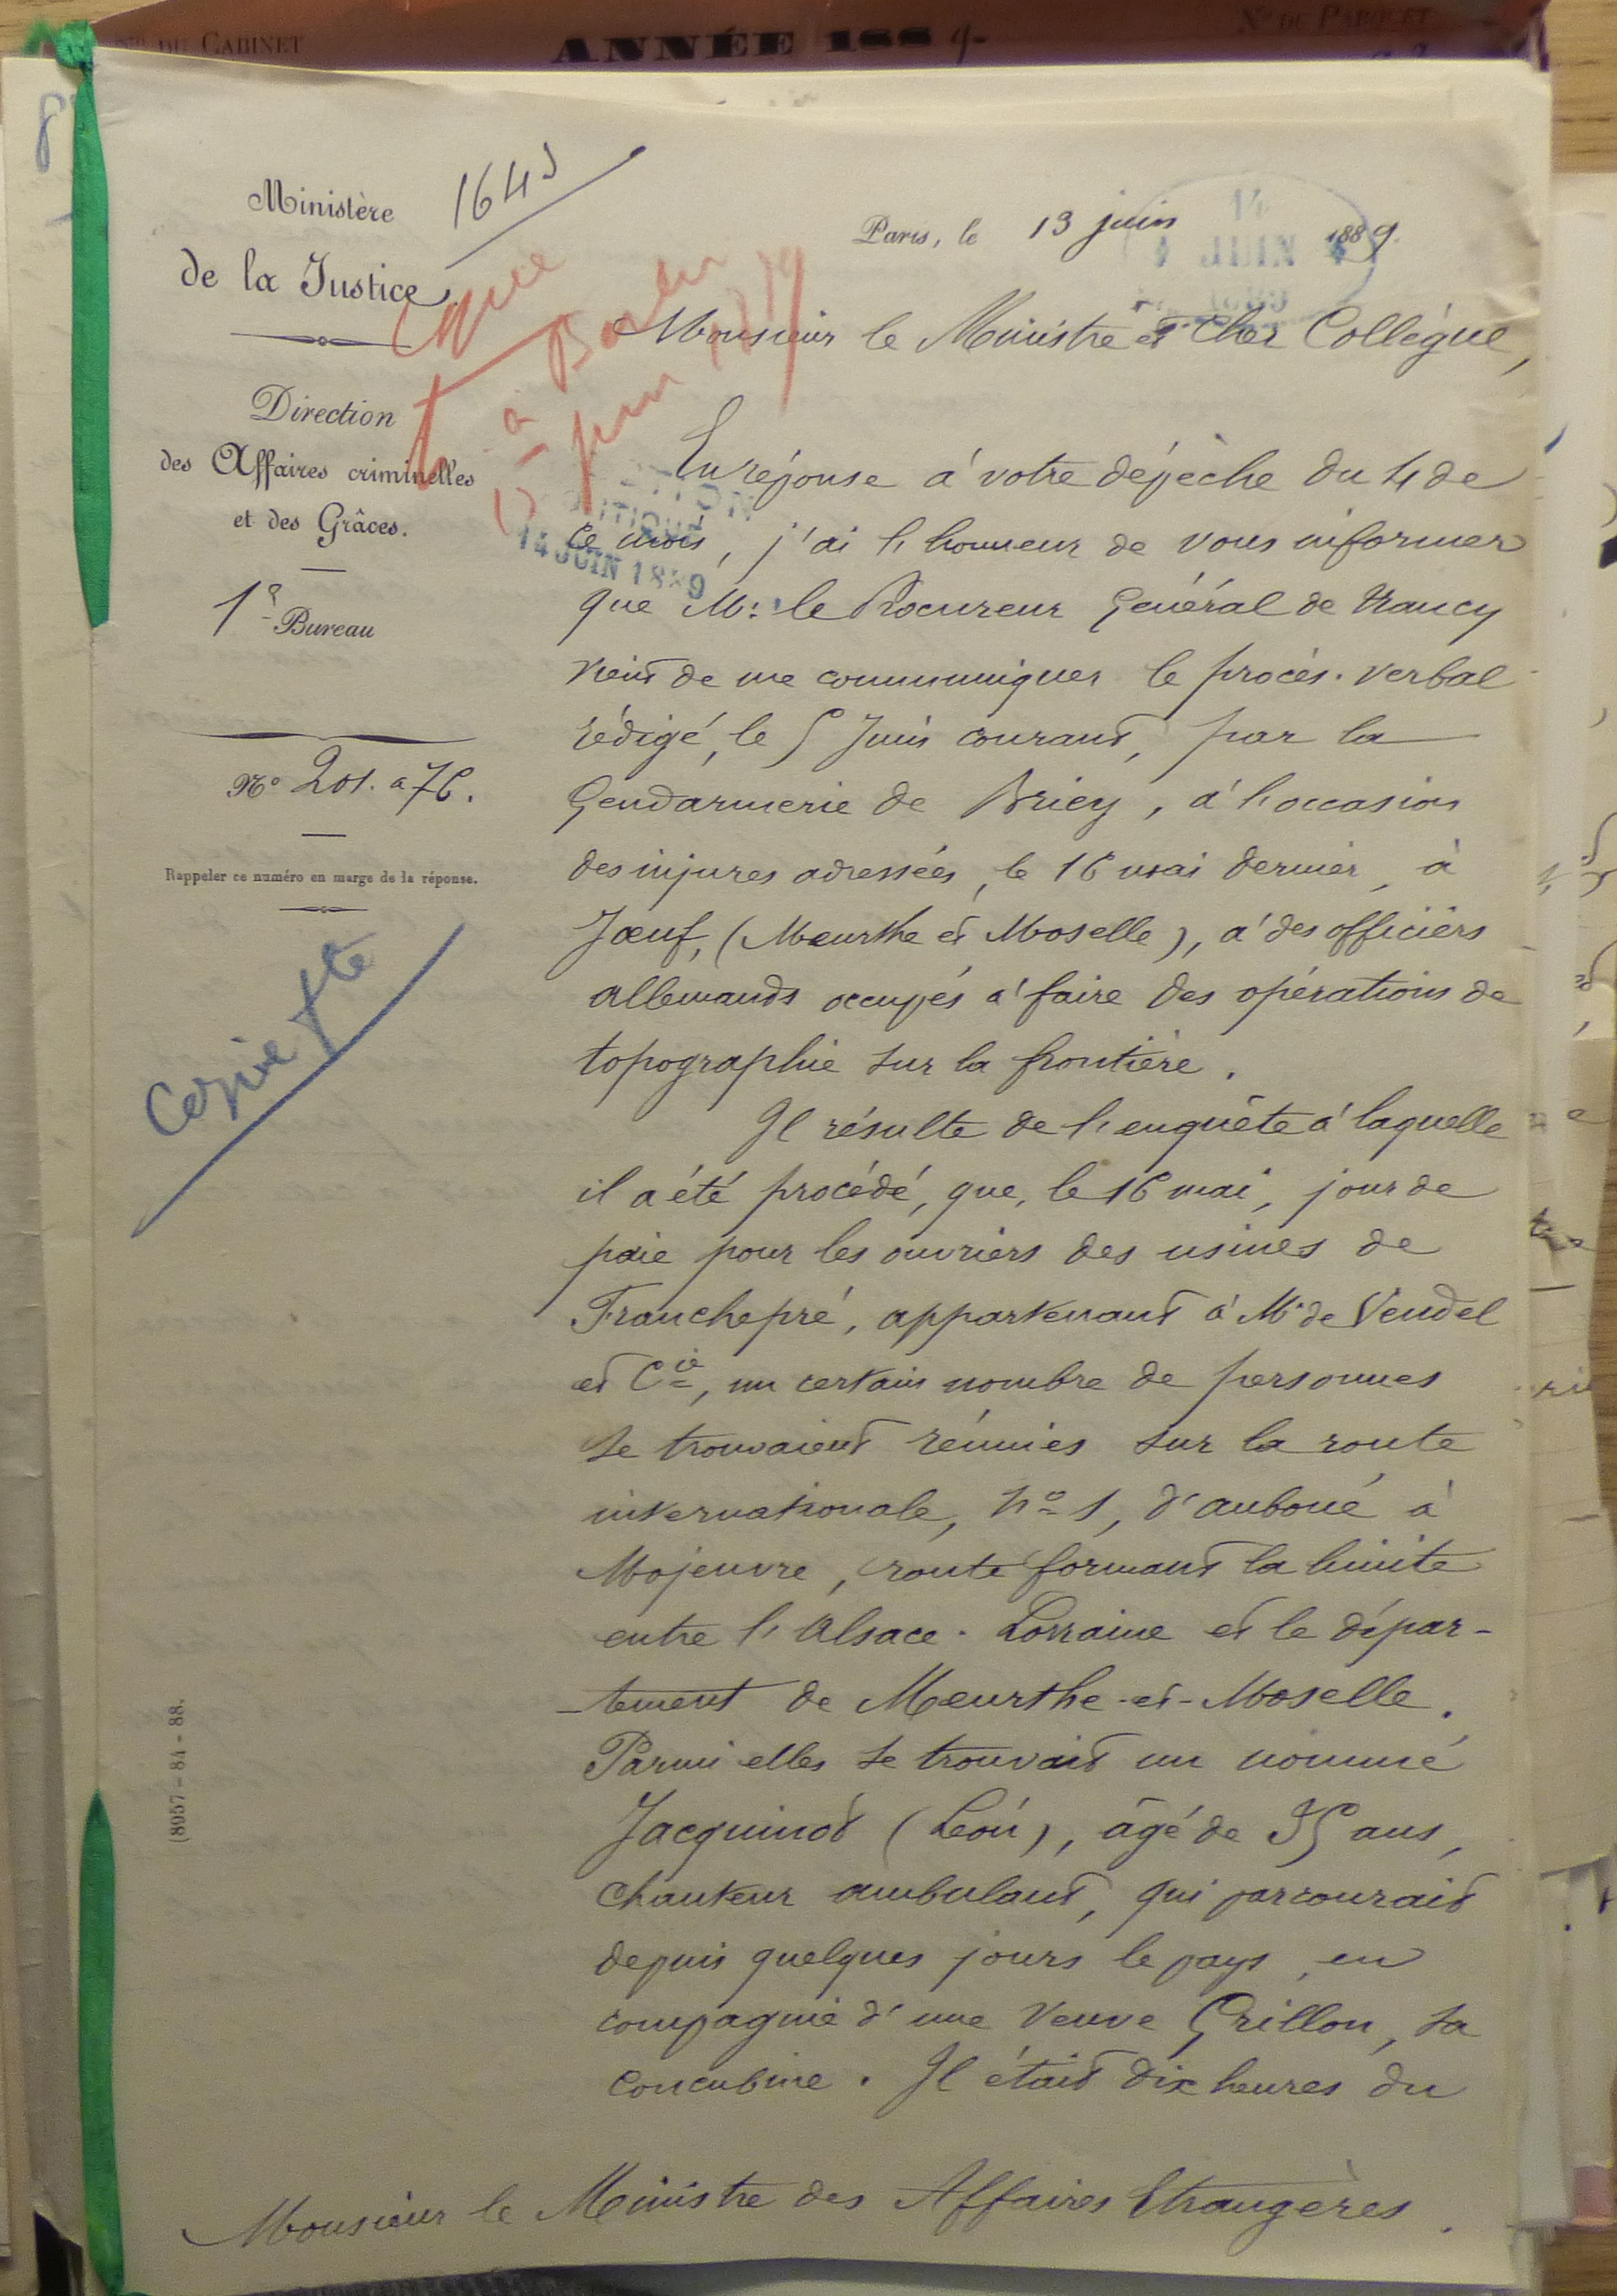 DU CABINET
ANNÉE 1889
N° DU PARQUET
Ministère
de la Justice.
Direction
des Affaires criminelles
et des Grâces.
1er Bureau
N° 201. a 76.
Rappeler ce numéro en marge de la réponse.
Copie fte
(8957-84-88.
1645
Copie
à Berlin
juin 1889
Paris, le 13 juin 1889.
14 JUIN 1889
Monsieur le Ministre et Cher Collègue,
En réponse à votre dépêche du 4 de
14 JUIN 1889
ce mois, j'ai l'honneur de vous informer
que Mr. le Procureur Général de Nancy
vient de me communiquer le procès-verbal
rédigé, le 5 Juin courant, par la
Gendarmerie de Briey, à l'occasion
des injures adressées, le 16 mai dernier, à
Jœuf, (Meurthe et Moselle), à des officiers
allemands occupés à faire des opérations de
topographie sur la frontière.
Il résulte de l'enquête à laquelle
il a été procédé, que, le 16 mai, jour de
paie pour les ouvriers des usines de
Franchepré, appartenant à Mr de Vendel
et Cie, un certain nombre de personnes
se trouvaient réunies sur la route
internationale, no 1, d'auboué à
Mojeuvre, route formant la limite
entre l'Alsace-Lorraine et le dépar-
-tement de Meurthe-et-Moselle.
Parmi elles se trouvait un nommé
Jacquinot (Léon), âgé de 35 ans,
chanteur ambulant, qui parcourait
depuis quelques jours le pays, en
compagnie d'une Veuve Grillon, sa
concubine. Il était dix heures du
Monsieur le Ministre des Affaires Etrangères.